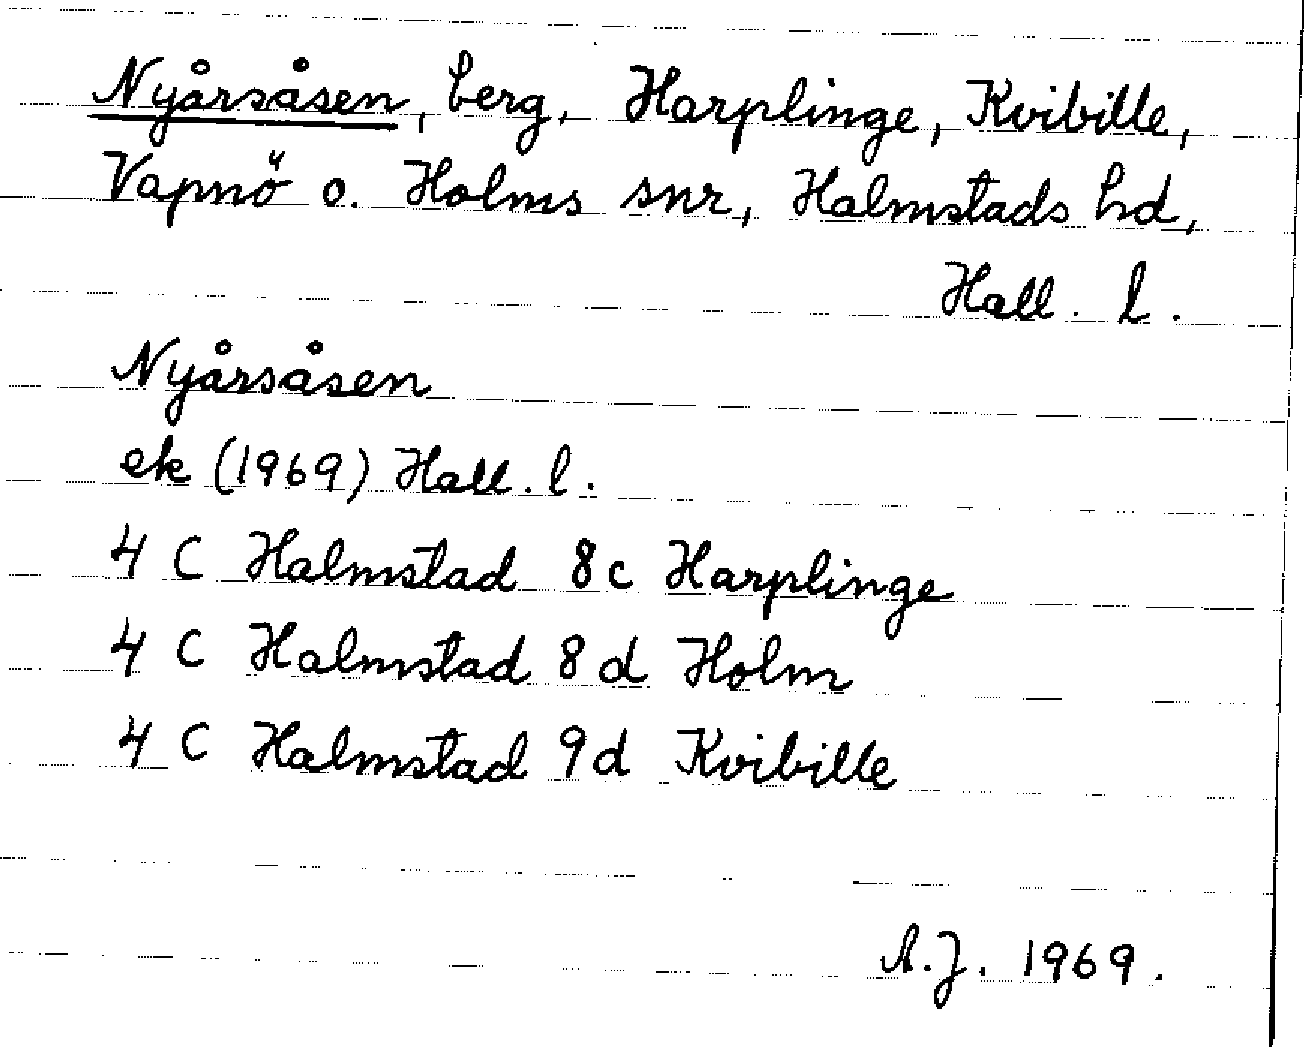 Nyårsåsen, berg, Harplinge, Kvibille,
Vapnö o. Holms snr, Halmstads hd,
Hall. l.
Nyårsåsen
ek (1969) Hall. l.
4 C Halmstad 8c Harplinge
4 C Halmstad 8 d Holm
4 C Halmstad 9d Kvibille
A.J. 1969.